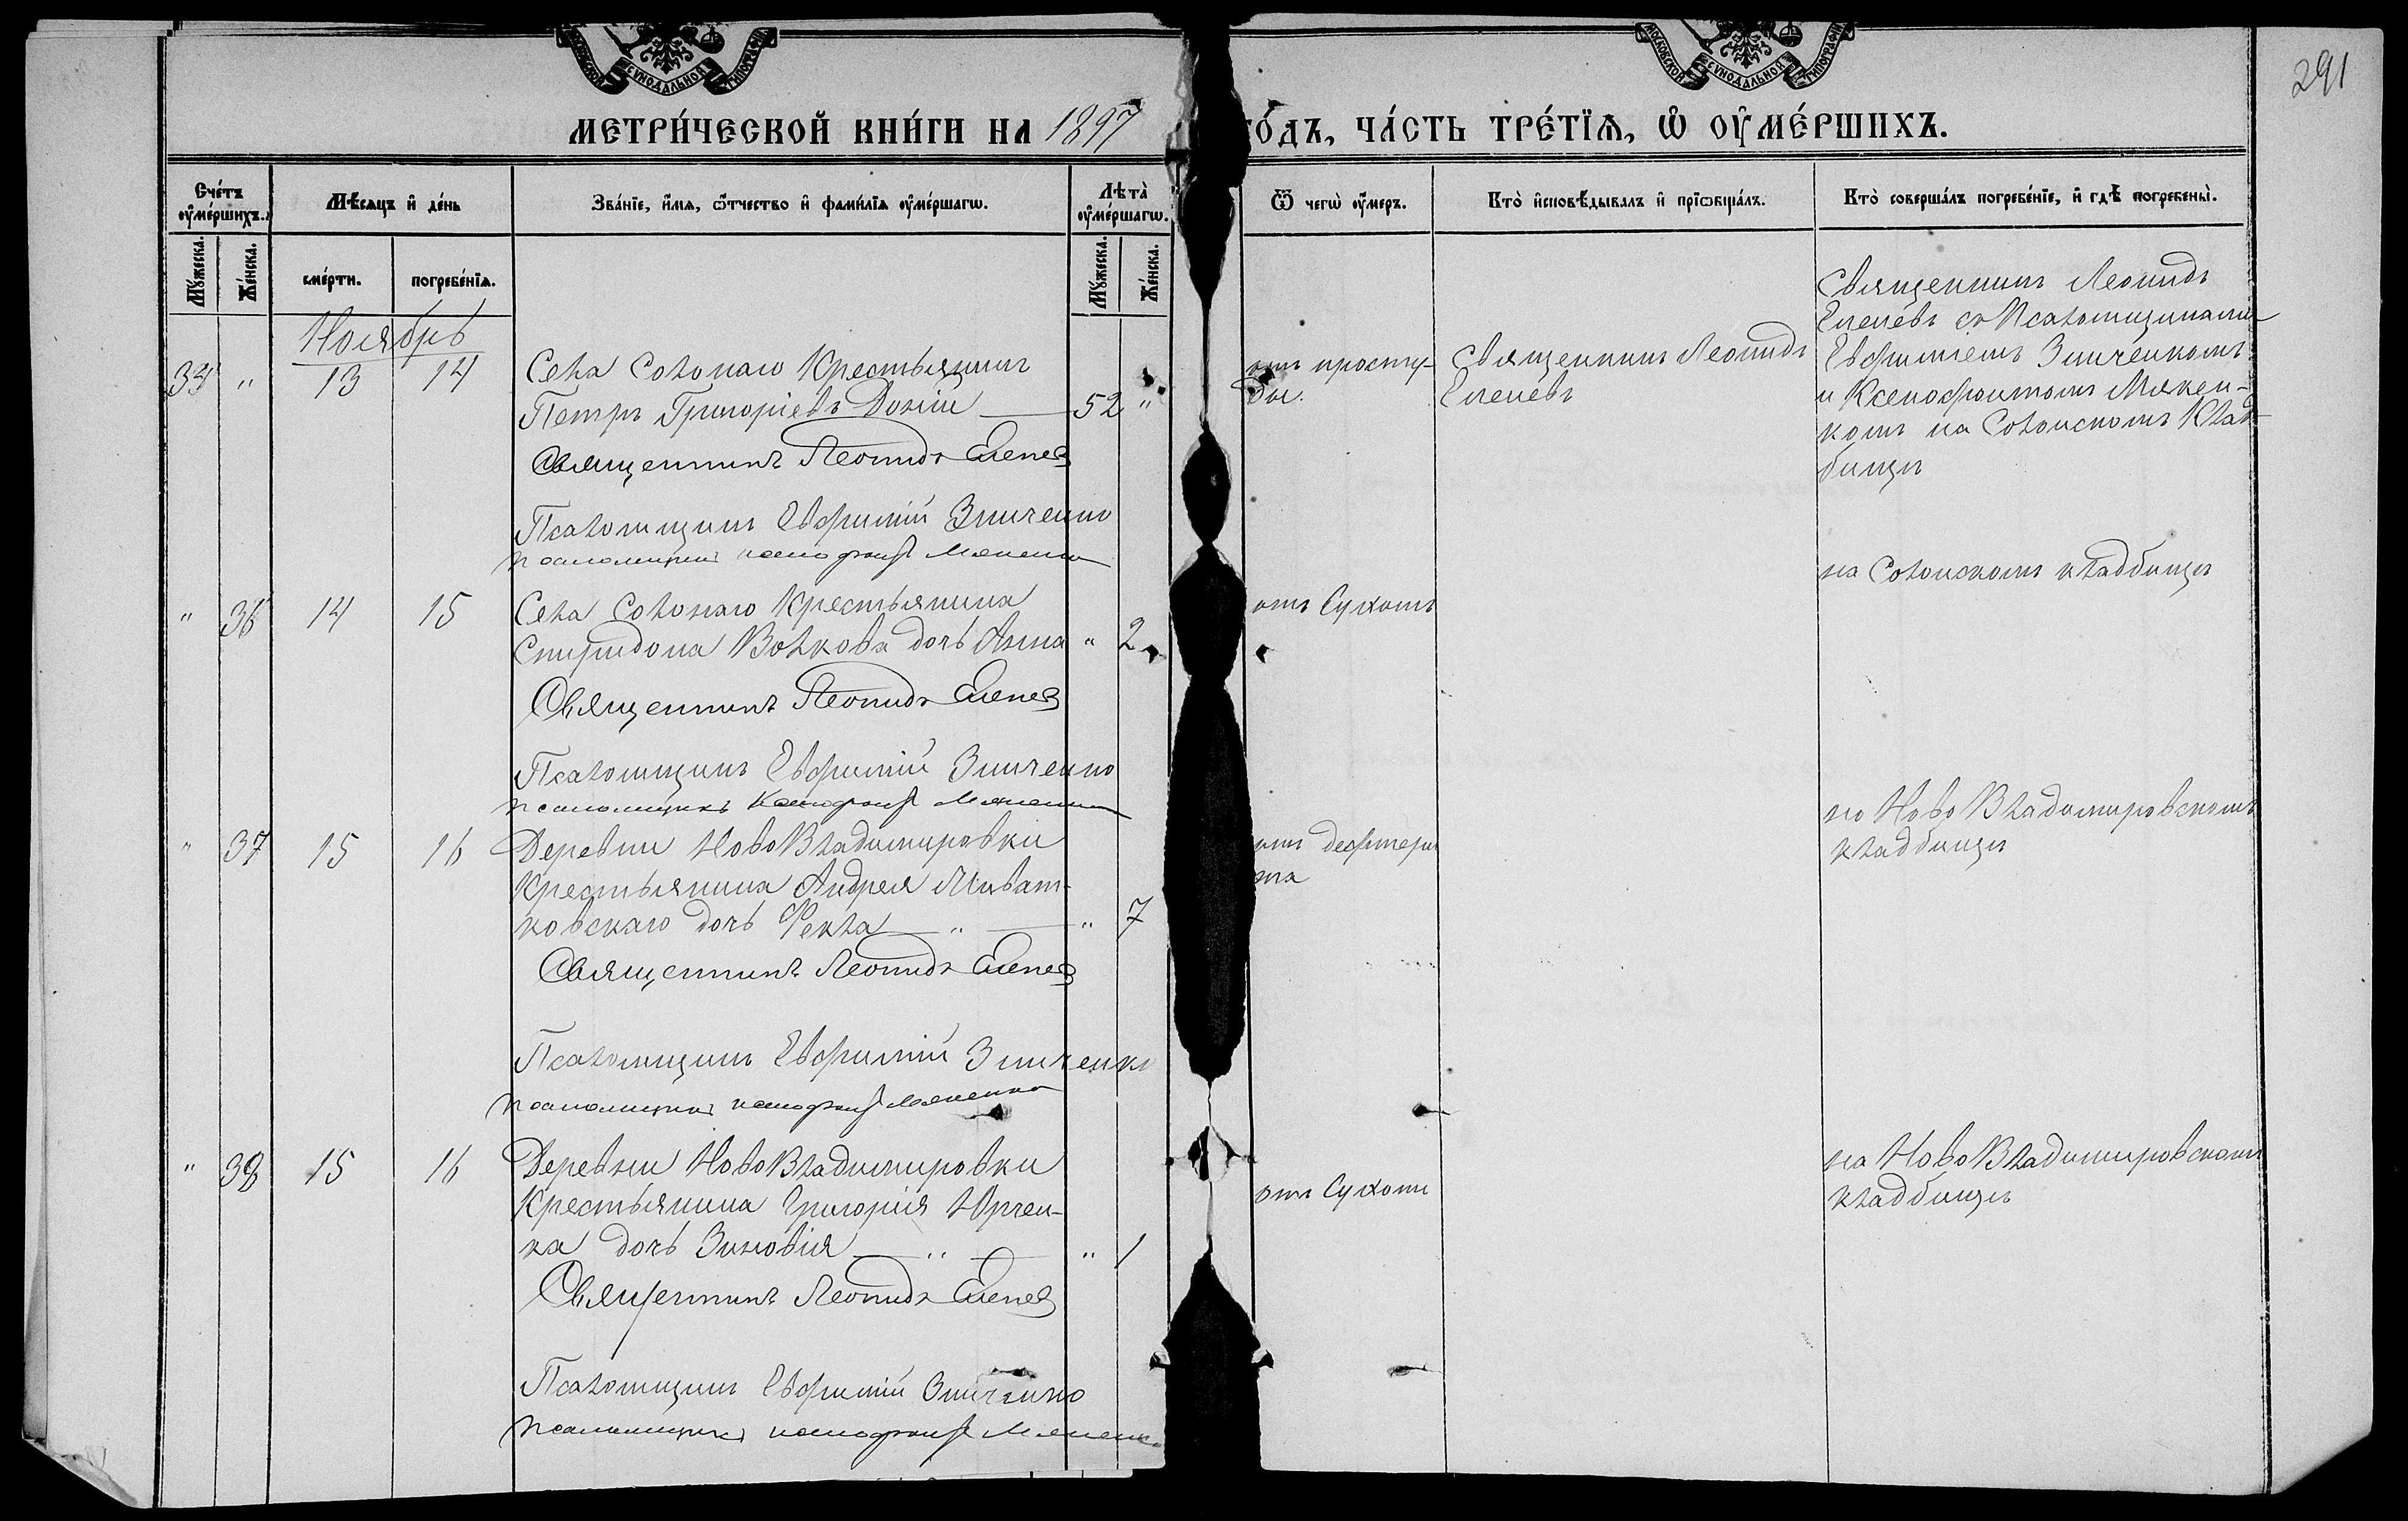 МОСКОВСКОЙ СУНОДАЛЬНОЙ ТИПОГРАФІИ
МОСКОВСКОЙ СУНОДАЛЬНОЙ ТИПОГРАФІИ
291
МЕТРИ́ЧЕСКОЙ КНИ́ГИ НА 1897 ГО́ДЪ, ЧА́СТЬ ТРЕ́ТЇѦ, Ѡ҆ ОУ҆МЕ́РШИХЪ.
Сче́тъ оу҆ме́ршихъ.
Мѣ́сяцъ и҆ де́нь
Зва́нїе, и҆́мя, ѻ҆́тчество и҆ фами́лїя оу҆ме́ршагѡ.
Лѣта̀ оу҆ме́ршагѡ.
Ѿ чегѡ̀ оу҆́меръ.
Кто̀ и҆сповѣ́дывалъ и҆ прїѡбща́лъ.
Кто̀ соверша́лъ погребе́нїе, и҆ гдѣ̀ погребены̀.
Мꙋ́жеска.
Же́нска.
сме́рти.
погребе́нїя.
Мꙋ́жеска.
Же́нска.
Ноябрь
34 " 13 14
Села Солонаго Крестьянинъ
Петръ Григоріевъ 52 "
Священникъ Леонидъ Еленев
Псаломщикъ Евфимій Зинченко
псаломщикъ Ксенофонт Мякенко
отъ просту-
ды.
Священникъ Леонидъ
Еленевъ
Священникъ Леонидъ
Еленевъ съ Псаломщиками
Евфиміемъ Зинченкомъ
и Ксенофонтомъ Мякен-
комъ на Солонскомъ Клад-
бищѣ
" 36 14 15
Села Солонаго Крестьянина
Спиридона Волкова дочь Анна " 2
Священникъ Леонидъ Еленев
Псаломщикъ Евфимій Зинченко
псаломщикъ Ксенофонт Мякенко
отъ Сухотъ
на Солонскомъ кладбищѣ
" 37 15 16
Деревни НовоВладимировки
Крестьянина Андрея
ковскаго дочь Фекла " " 7
Священникъ Леонидъ Еленев
Псаломщикъ Евфимій Зинченко
псаломщикъ Ксенофонт Мякенко
отъ дефтери
та
на НовоВладимировскомъ
кладбищѣ
" 38 15 16
Деревни НовоВладимировки
Крестьянина Григорія Юрчен-
ка дочь Зиновія " " 1
Священникъ Леонидъ Еленев
Псаломщикъ Евфимій Зинченко
псаломщикъ Ксенофонт Мякенко
отъ Сухотъ
на НовоВладимировскомъ
кладбищѣ